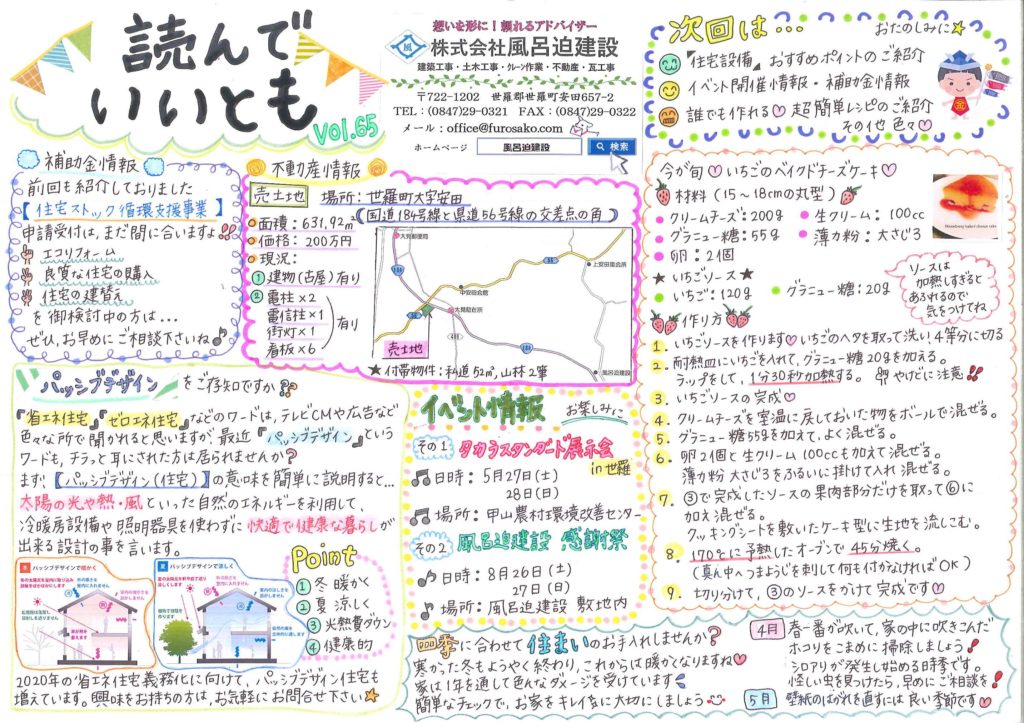 読んで
いいとも
Vol.65
想いを形に!頼れるアドバイザー
株式会社風呂迫建設
建築工事・土木工事・クレーン作業・不動産・瓦工事
〒722-1202 世羅郡世羅町安田657-2
TEL:(0847)29-0321 FAX:(0847)29-0322
メール:office@furosako.com
ホームページ 風呂迫建設 検索
次回は… おたのしみに☆
『住宅設備』おすすめポイントのご紹介
イベント開催情報・補助金情報
誰でも作れる♡超簡単レシピのご紹介
その他 色々♡
補助金情報
前回も紹介しておりました
【住宅ストック循環支援事業】
申請受付は、まだ間に合いますよ!!
エコリフォーム
良質な住宅の購入
住宅の建替え
を御検討中の方は…
ぜひ、お早めにご相談下さいね♪
不動産情報
売土地 場所:世羅町大字安田
(国道184号線と県道56号線の交差点の角)
●面積:631,92㎡
●価格:200万円
●現況:
①建物(古屋)有り
②電柱×2
電信柱×1
街灯×1
看板×6
有り
大見郵便局
上安田集会所
中安田会館
大見駐在所
売土地
風呂迫建設
★付帯物件:私道52㎡,山林2筆
今が旬♡いちごのベイクドチーズケーキ♡
材料(15~18cmの丸型)
●クリームチーズ:200g ●生クリーム:100cc
●グラニュー糖:55g ●薄力粉:大さじ3
●卵:2個
★いちごソース★
●いちご:120g ●グラニュー糖:20g
ソースは
加熱しすぎると
あふれるので
気をつけてね
作り方
1. いちごソースを作ります♡いちごのヘタを取って洗い4等分に切る
2. 耐熱皿にいちごを入れて、グラニュー糖20gを加える。
ラップをして、1分30秒加熱する。やけどに注意!!
3. いちごソースの完成♡
4. クリームチーズを室温に戻しておいた物をボールで混ぜる。
5. グラニュー糖55gを加えて、よく混ぜる。
6. 卵2個と生クリーム100ccも加えて混ぜる。
薄力粉 大さじ3をふるいに掛けて入れ混ぜる。
7. ③で完成したソースの果肉部分だけを取って⑥に
加え混ぜる。
クッキングシートを敷いたケーキ型に生地を流しこむ。
8 170℃に予熱したオーブンで45分焼く。
(真ん中へつまようじを刺して何も付かなければOK)
9. 切り分けて、③のソースをかけて完成です♡
パッシブデザインをご存知ですか??
『省エネ住宅』『ゼロエネ住宅』などのワードは、テレビCMや広告など
色々な所で聞かれると思いますが、最近『パッシブデザイン』という
ワードも、チラッと耳にされた方は居られませんか?
まず!【パッシブデザイン(住宅)】の意味を簡単に説明すると…
太陽の光や熱・風といった自然のエネルギーを利用して、
冷暖房設備や照明器具を使わずに快適で健康な暮らしが
出来る設計の事を言います。
冬 パッシブデザインで暖かく
夏 パッシブデザインで涼しく
Point
①冬 暖かく
②夏 涼しく
③光熱費ダウン
④健康的
2020年の省エネ住宅義務化に向けて、パッシブデザイン住宅も
増えています。興味をお持ちの方は、お気軽にお問合せ下さい☆
イベント情報 お楽しみに
その1 タカラスタンダード展示会
in世羅
日時:5月27日(土)
28日(日)
場所:甲山農村環境改善センター
その2 風呂迫建設 感謝祭
日時:8月26日(土)
27日(日)
場所:風呂迫建設 敷地内
四季に合わせて住まいのお手入れしませんか?
寒かった冬もようやく終わり、これからは暖かくなりますね♡
家は1年を通して色んなダメージを受けています
簡単なチェックで、お家をキレイ&大切にしましょう
4月 春一番が吹いて、家の中に吹きこんだ
ホコリをこまめに掃除しましょう!
シロアリが発生し始める時季です。
怪しい虫を見つけたら、早めにご相談を!
5月 壁紙のはがれを直すには良い季節です♡